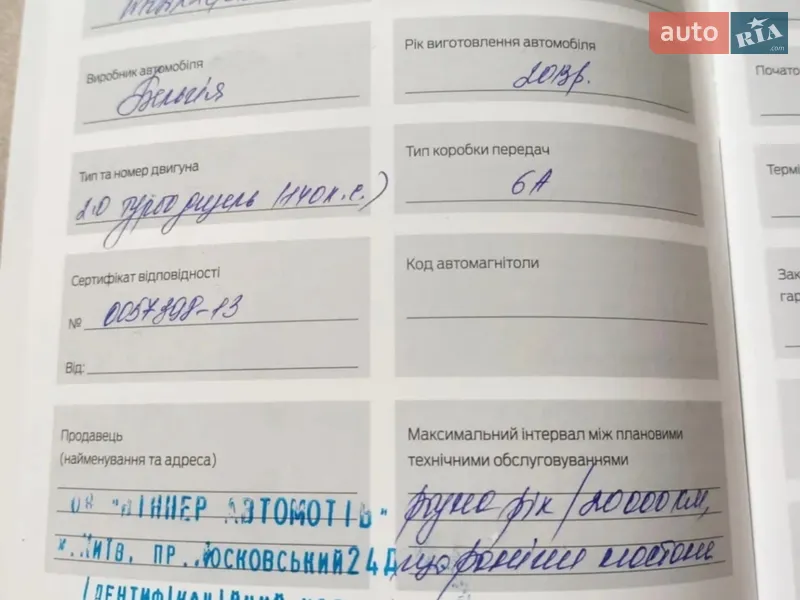 auto RIA .com
Виробник автомобіля
Бельгія
Рік виготовлення автомобіля
2013р.
Тип та номер двигуна
2.0 турбодизель (140 к.с.)
Тип коробки передач
6А
Сертифікат відповідності
№ 0057898-13
Від:
Код автомагнітоли
Продавець
(найменування та адреса)
АВТОМОТІВ"
Максимальний інтервал між плановими
технічними обслуговуваннями
рік / 20 000 км,
що раніше настане
Термі
Зак
гар